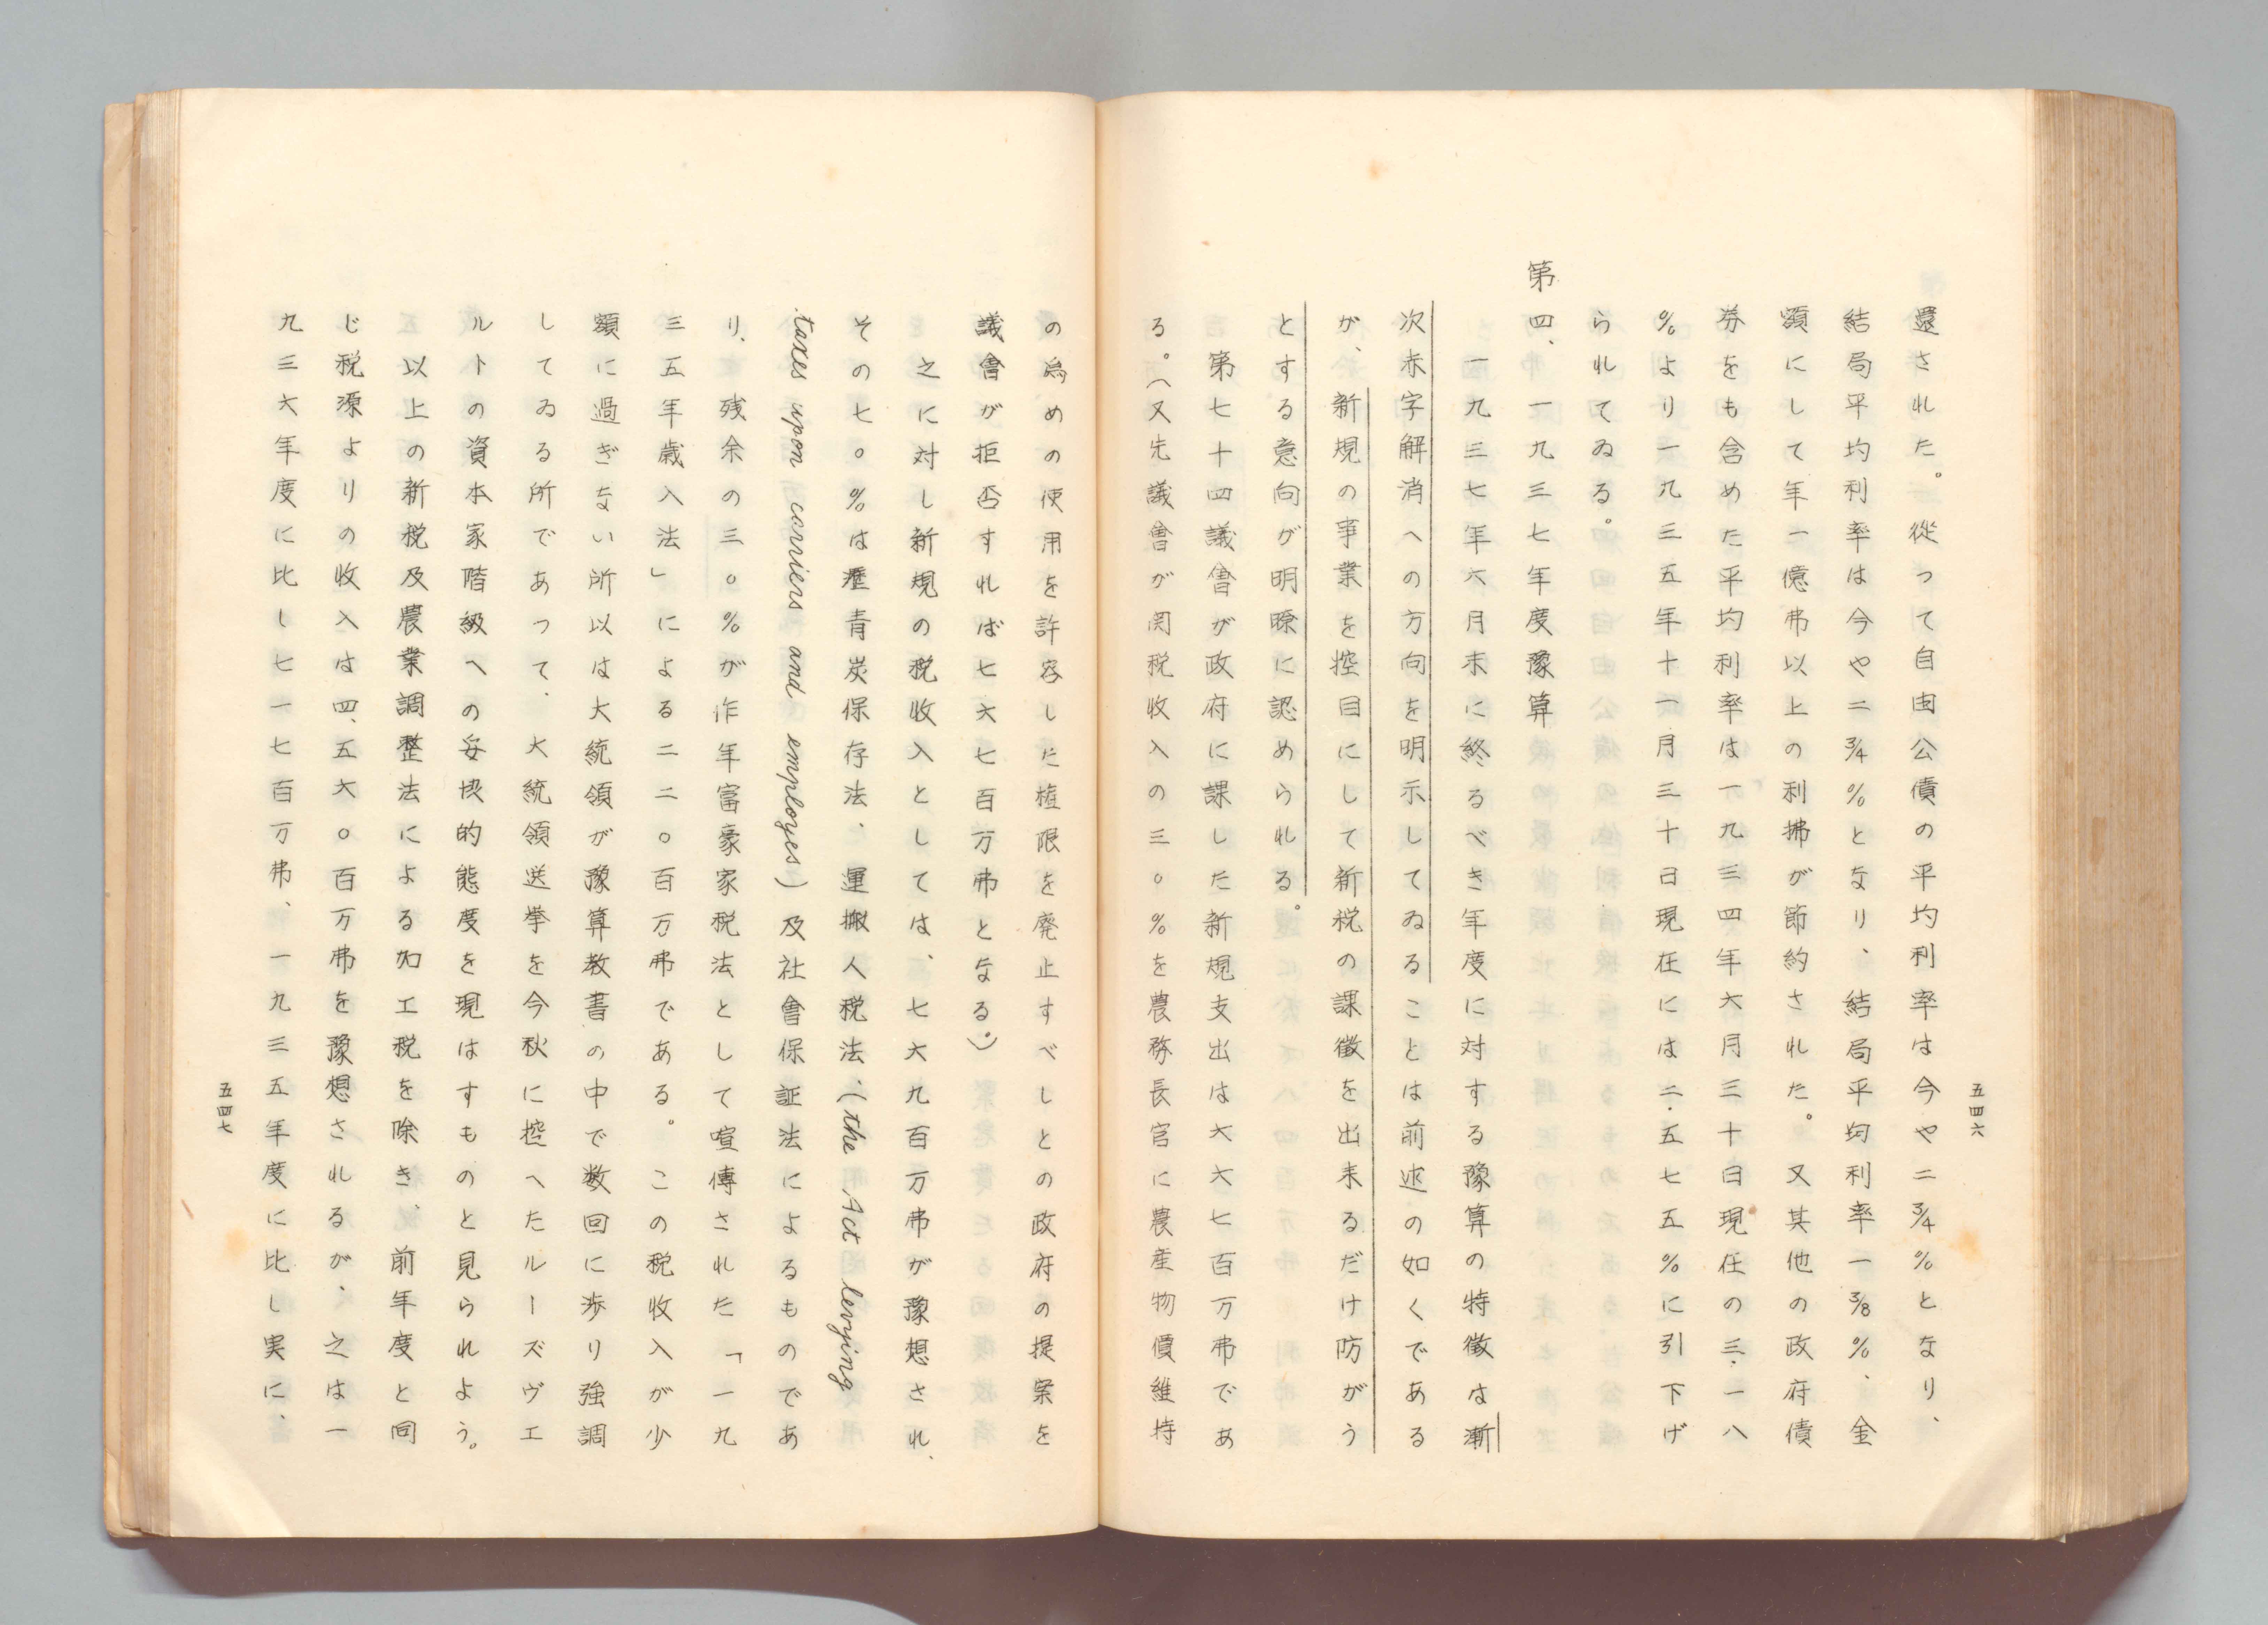 五四六
還された。従つて自由公債の平均利率は今や二3/4％となり、
結局平均利率は今や二3/4％となり、結局平均利率一3/8％、金
額にして年一億弗以上の利拂が節約された。又其他の政府債
券をも含めた平均利率は一九三四年六月三十日現在の三.一八
％より一九三五年十一月三十日現在には二.五七五％に引下げ
られてゐる。
第四、一九三七年度豫算
一九三七年六月末に終るべき年度に対する豫算の特徴は漸
次赤字解消への方向を明示してゐることは前述の如くである
が、新規の事業を控目にして新税の課徴を出来るだけ防がう
とする意向が明瞭に認められる。
第七十四議會が政府に課した新規支出は六六七百万弗であ
る。（又先議會が関税収入の三〇％を農務長官に農産物價維持
の為めの使用を許容した権限を廃止すべしとの政府の提案を
議會が拒否すれば七六七百万弗となる。）
之に対し新規の税収入としては、七六九百万弗が豫想され、
その七〇％は瀝青炭保存法、運搬人税法、（the Act levying
taxes upon carriers and employes）及社會保証法によるものであ
り、残余の三〇％が昨年富豪家税法として喧傳された「一九
三五年歳入法」による二二〇百万弗である。この税収入が少
額に過ぎない所以は大統領が豫算教書の中で数回に渉り強調
してゐる所であつて、大統領送挙を今秋に控へたルーズヴエ
ルトの資本家階級への妥協的態度を現はすものと見られよう。
以上の新税及農業調整法による加工税を除き、前年度と同
じ税源よりの収入は四、五六〇百万弗を豫想されるが、之は一
九三六年度に比し七一七百万弗、一九三五年度に比し実に、
五四七